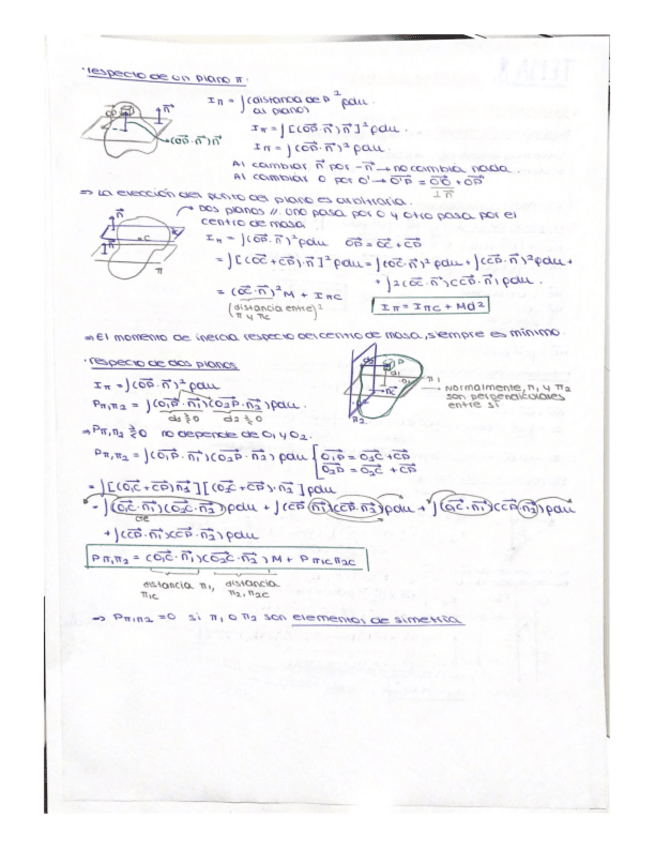 · respecto de un plano π.
Iπ = ∫(distancia de P al plano)² ρdv.
Iπ = ∫[(OP·n)n]² ρdv.
→(OP·n)n
Iπ = ∫(OP·n)² ρdv.
Al cambiar n por -n → no cambia nada.
Al cambiar O por O' → O'P = O'O + OP
⊥ n
⇒ La elección del punto del plano es arbitraria.
→ Dos planos //. Uno pasa por O y otro pasa por el
centro de masa.
Iπ = ∫(OP·n)² ρdv OP = OC + CP
= ∫[(OC + CP)·n]² ρdv = ∫(OC·n)² ρdv + ∫(CP·n)² ρdv +
+ ∫2(OC·n)(CP·n) ρdv.
= (OC·n)² M + IπC
(distancia entre π y πC)²
Iπ = IπC + Md²
⇒ El momento de inercia respecto del centro de masa, siempre es mínimo.
· respecto de dos planos
Iπ = ∫(OP·n)² ρdv
Pπ1π2 = ∫(O1P·n1)(O2P·n2) ρdv.
d1 ≷ 0 d2 ≷ 0
→ Normalmente, π1 y π2
son perpendiculares
entre sí
⇒ Pπ1π2 ≷ 0 no depende de O1 y O2.
Pπ1π2 = ∫(O1P·n1)(O2P·n2) ρdv { O1P = O1C + CP
O2P = O2C + CP
= ∫[(O1C + CP)n1][(O2C + CP)·n2] ρdv
= ∫(O1C·n1)(O2C·n2) ρdv + ∫(CP·n1)(CP·n2) ρdv + ∫(O1C·n1)(CP·n2) ρdv
cte
+ ∫(CP·n1)(CP·n2) ρdv
Pπ1π2 = (O1C·n1)(O2C·n2) M + Pπ1Cπ2C
distancia π1, π1C distancia π2, π2C
⇒ Pπ1π2 = 0 si π1 o π2 son elementos de simetría